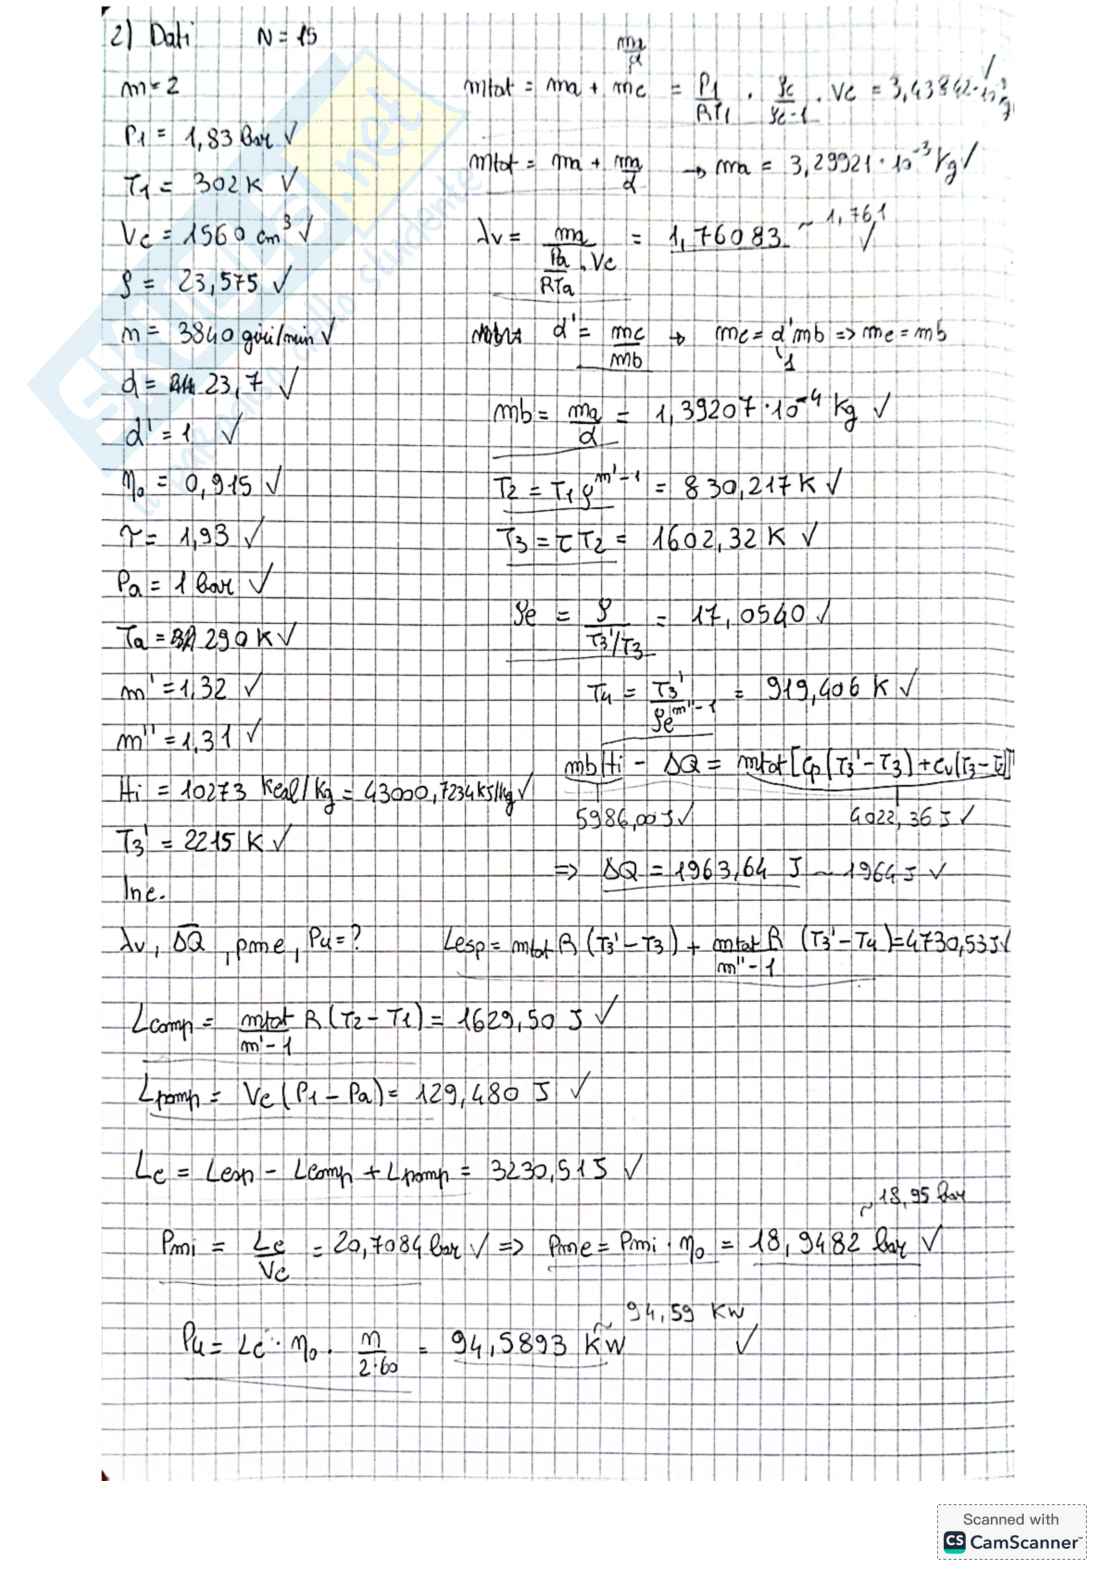 2) Dati N = 15
m = 2
P1 = 1,83 bar ✓
T1 = 302 K ✓
Vc = 1560 cm³ ✓
ρ = 23,575 ✓
n = 3840 giri/min ✓
d = 23,7 ✓
d' = 1 ✓
η0 = 0,915 ✓
τ = 1,93 ✓
Pa = 1 bar ✓
Ta = 290 K ✓
m' = 1,32 ✓
m'' = 1,31 ✓
Hi = 10273 Kcal/Kg = 43000,7234 KJ/kg ✓
T3' = 2215 K ✓
Inc.
λv, ΔQ, pme, Pu = ?
ma/d
mtot = ma + mc = P1/RT1 · ρc/ρc-1 · Vc = 3,43842·10⁻³ Kg ✓
mtot = ma + ma/d → ma = 3,29921·10⁻³ Kg ✓
λv = ma / (Pa/RTa · Vc) = 1,76083 ~ 1,761 ✓
d' = mc/mb → mc = d'mb => mc = mb
1
mb = ma/d = 1,39207·10⁻⁴ Kg ✓
T2 = T1 ρ^m'-1 = 830,217 K ✓
T3 = τ T2 = 1602,32 K ✓
ρe = ρ / (T3'/T3) = 17,0540 ✓
T4 = T3' / ρe^m''-1 = 919,406 K ✓
mb Hi - ΔQ = mtot [Cp (T3' - T3) + Cv (T3 - T2)]
5986,00 J ✓ 4022,36 J ✓
=> ΔQ = 1963,64 J ~ 1964 J ✓
Lesp = mtot R (T3' - T3) + mtot R / m''-1 (T3' - T4) = 4730,53 J ✓
Lcomp = mtot / m'-1 R (T2 - T1) = 1629,50 J ✓
Lpomp = Vc (P1 - Pa) = 129,480 J ✓
Lc = Lesp - Lcomp + Lpomp = 3230,51 J ✓
Pmi = Lc/Vc = 20,7084 bar ✓ => Pme = Pmi · η0 = 18,9482 bar ✓
~ 18,95 bar
Pu = Lc · η0 · n / 2·60 = 94,5893 KW ~ 94,59 KW ✓
SKUOLA.net
Scanned with
CS CamScanner